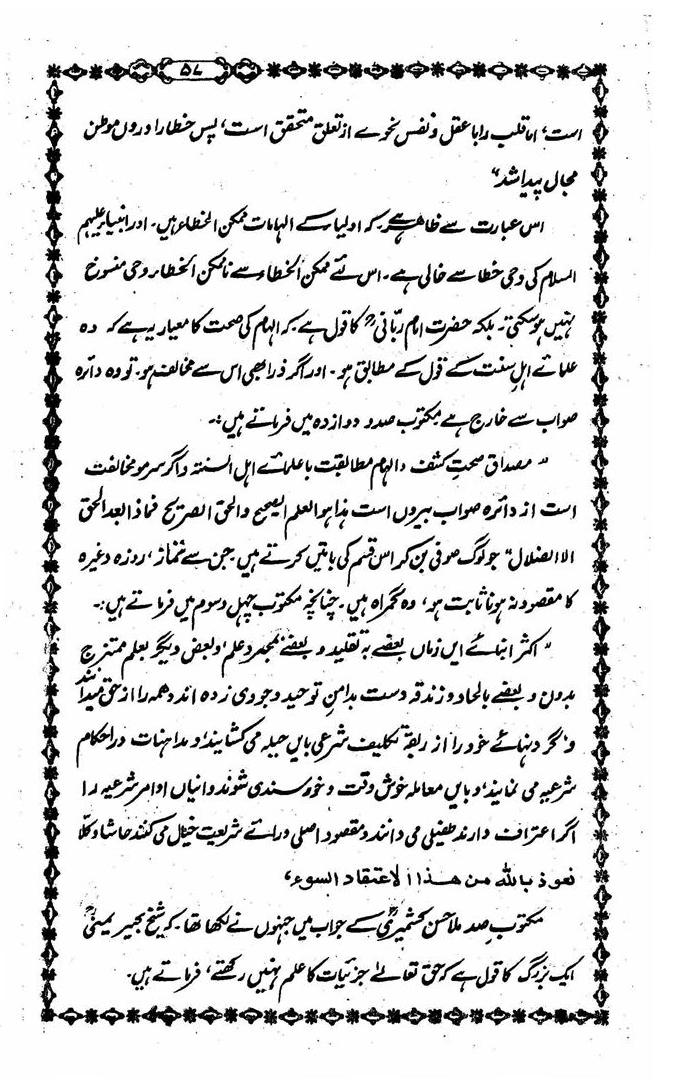 ۵۷
است، اما قلب را با عقل و نفس نحوے از تعلق متحقق است، پس خطا را دروں موطن
مجال پیدا شد"
اس عبارت سے ظاہر ہے۔ کہ اولیاء کے الہامات ممکن الخطاء ہیں۔ اور انبیاء علیہم
السلام کی وحی خطا سے خالی ہے۔ اس لئے ممکن الخطاء سے ناممکن الخطاء وحی منسوخ
نہیں ہو سکتی۔ بلکہ حضرت امام ربانیؒ کا قول ہے۔ کہ الہام کی صحت کا معیار یہ ہے کہ وہ
علمائے اہل سنت کے قول کے مطابق ہو۔ اور اگر ذرا بھی اس سے مخالف ہو۔ تو وہ دائرہ
صواب سے خارج ہے مکتوب صدد دوازدہ میں فرماتے ہیں:۔
"مصداق صحتِ کشف و الہام مطابقت با علمائے اہل السنۃ و اگر سرمو مخالفت
است از دائرہ صواب بیروں است ہذا ہو العلم الصحیح والحق الصریح فماذا بعد الحق
الا الضلال" جو لوگ صوفی بن کر اس قسم کی باتیں کرتے ہیں۔ جن سے نماز، روزہ وغیرہ
کا مقصود نہ ہونا ثابت ہو، وہ گمراہ ہیں۔ چنانچہ مکتوب چہل و سوم میں فرماتے ہیں:۔
"اکثر ابنائے ایں زماں بعضے بہ تقلید و بعضے بمجرد علم و بعض دیگر بعلم ممتزج
بدون و بعضے بالحاد و زندقہ دست بدامنِ توحید وجودی زدہ اند و ہمہ را از حق میدانند
و گردنہائے خود را از ربقہ تکلیف شرعی بایں حیلہ می کشایند و مداہنات در احکام
شرعیہ می نمایند و بایں معاملہ خوش وقت و خورسندی شوند و اتیان اوامر شرعیہ را
اگر اعتراف دارند طفیلی می دانند و مقصود اصلی ورائے شریعت خیال می کنند حاشا و کلا
نعوذ بالله من هذا الاعتقاد السوء،
مکتوب صد ملا حسن کشمیریؒ کے جواب میں جنہوں نے لکھا تھا۔ کہ شیخ کبیر یمنیؒ
ایک بزرگ کا قول ہے کہ حق تعالےٰ جزئیات کا علم نہیں رکھتے، فرماتے ہیں۔